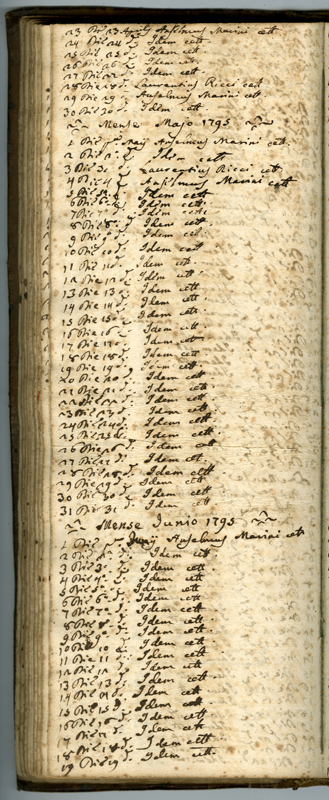 23 Die 23 Aprilis Anselmus Marini cett
24 Die 24 d. Idem cett
25 Die 25 d. Idem cett
26 Die 26 d. Idem cett
27 Die 27 d. Idem cett
28 Die 28 d. Laurentius Ricci cett
29 Die 29 d. Anselmus Marini cett
30 Die 30 d. Idem cett
Mense Majo 1795
1 Die Maij Anselmus Marini cett.
2 Die 2 d. Idem cett
3 Die 3 d. Laurentius Ricci cett
4 Die 4 d. Anselmus Marini cett
5 Die d. Idem cett
6 Die 6 d. Idem cett.
7 Die 7 d. Idem cett
8 Die 8 d. Idem cett
9 Die 9 d. Idem cett
10 Die 10 d. Idem cett
11 Die 11 d. Idem cett.
12 Die 12 d. Idem cett.
13 Die 13 d. Idem cett.
14 Die 14 d. Idem cett
15 Die 15 d. Idem cett.
16 Die 16 d. Idem cett
17 Die 17 d. Idem cett.
18 Die 18 d. Idem cett
19 Die 19 d. Idem cett
20 Die 20 d. Idem cett
21 Die 21 d. Idem cett.
22 Die 22 d. Idem cett
23 Die 23 d. Idem cett
24 Die 24 d. Idem cett
25 Die 25 d. Idem cett
26 Die 26 d. Idem cett
27 Die 27 d. Idem cett
28 Die 28 d. Idem cett
29 Die 29 d. Idem cett
30 Die 30 d. Idem cett
31 Die 31 d. Idem cett
Mense Junio 1795
1 Die Junij Anselmus Marini cett
2 Die 2 d. Idem cett
3 Die 3 d. Idem cett
4 Die 4 d. Idem cett
5 Die d. Idem cett
6 Die 6 d. Idem cett.
7 Die 7 d. Idem cett
8 Die 8 d. Idem cett
9 Die 9 d. Idem cett.
10 Die 10 d. Idem cett
11 Die 11 d. Idem cett
12 Die 12 d. Idem cett
13 Die 13 d. Idem cett.
14 Die 14 d. Idem cett
15 Die 15 d. Idem cett
16 Die 16 d. Idem cett
17 Die 17 d. Idem cett
18 Die 18 d. Idem cett
19 Die 19 d. Idem cett.